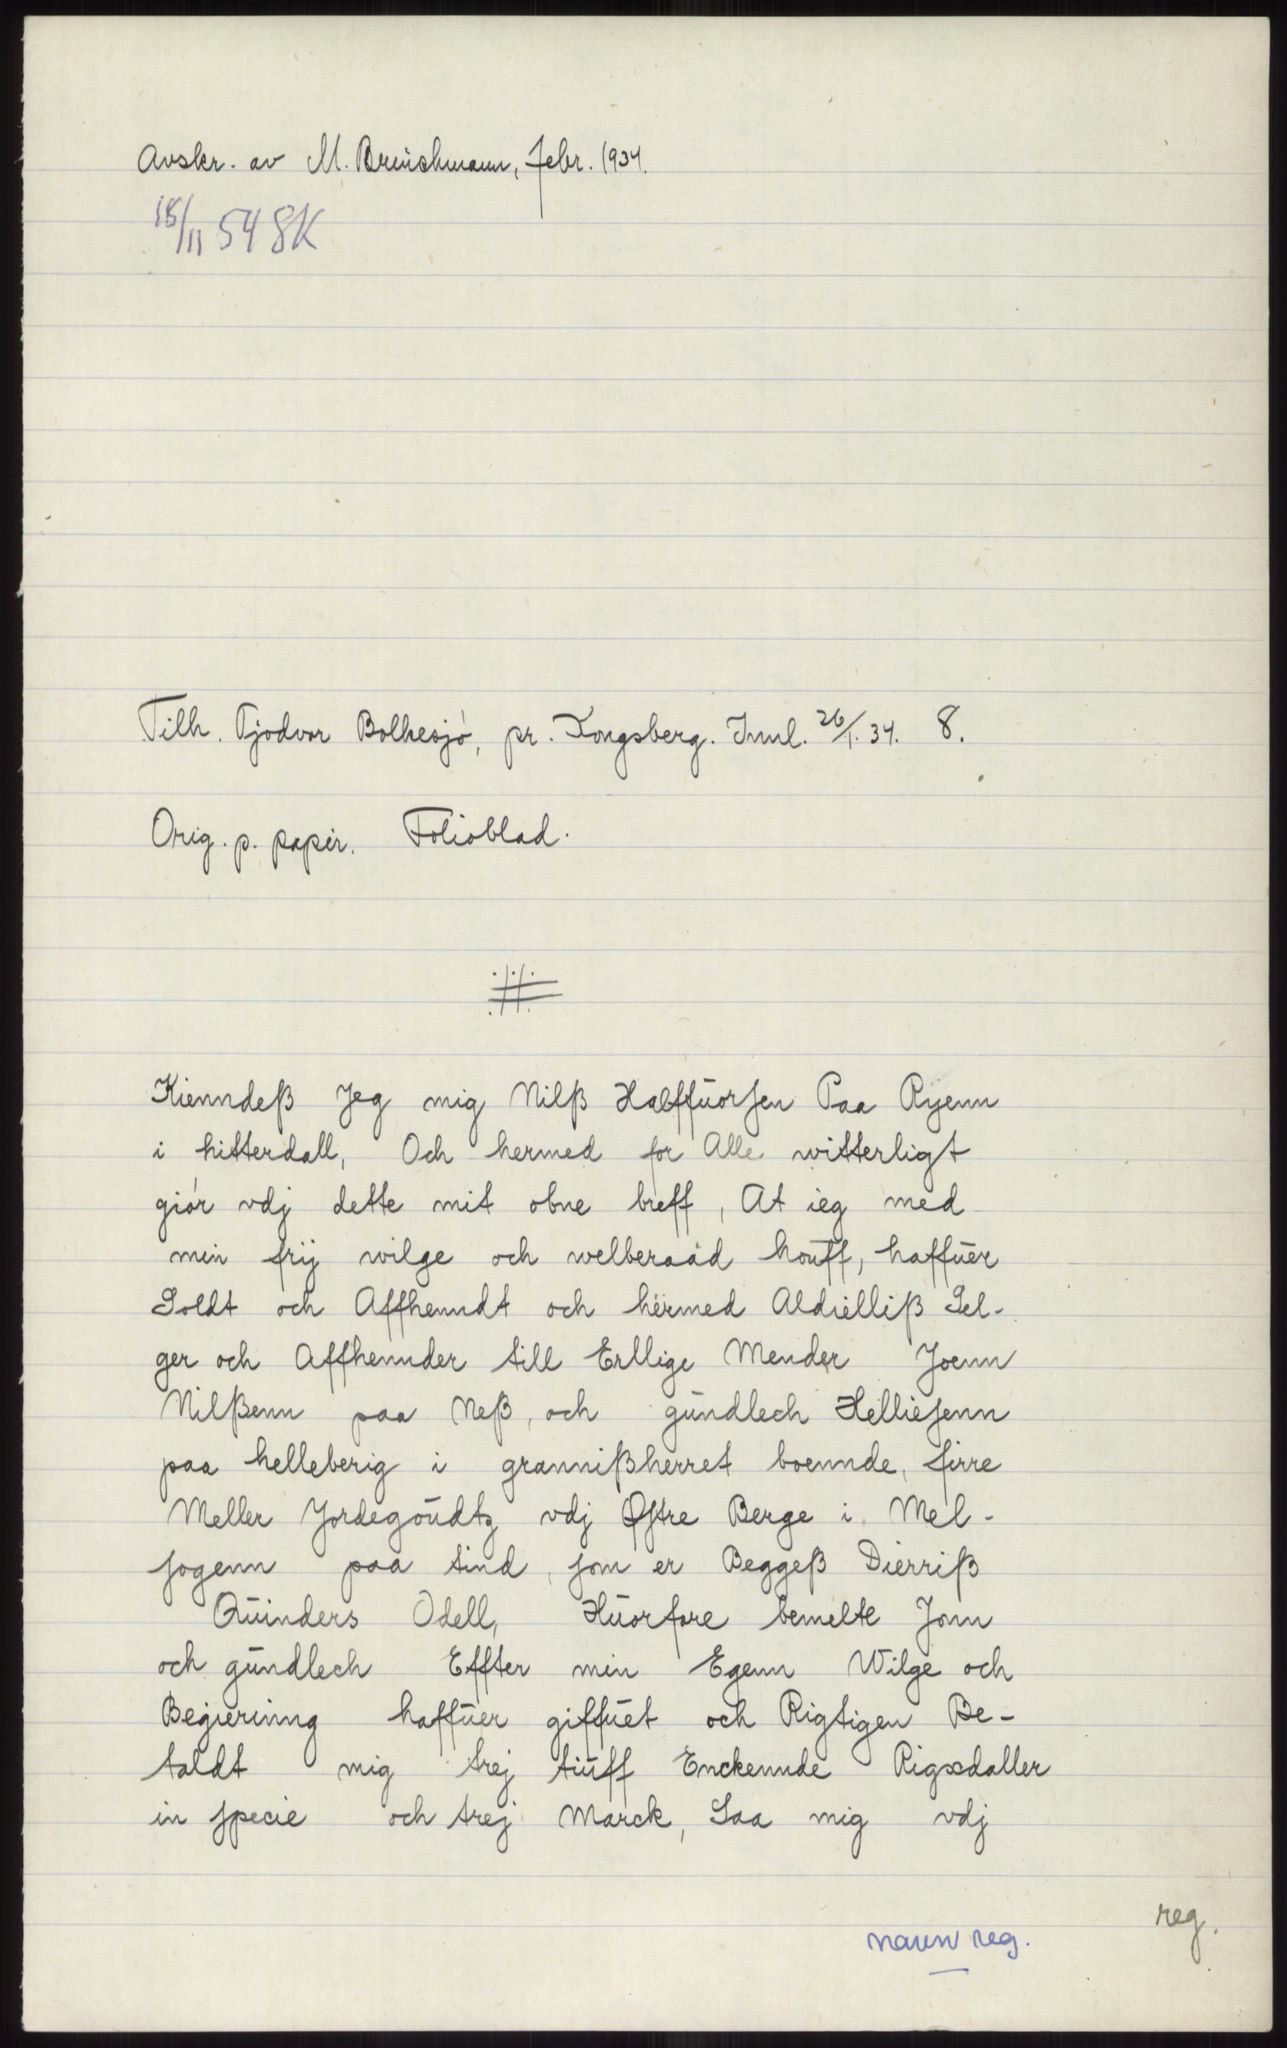 Avskr. av M. Brinchmann, febr. 1934.
18/11 54 8K
Tilh. Tjodvor Bolkesjó, pr. Kongsberg. Innl. 26/1. 34. 8.
Orig. p. papir. Folioblad.
Kienndeß Jeg mig Nilß Halffuorsen Paa Ryenn
i hitterdall, Och hermed for Alle witterligt
giór vdj dette mit obne breff, At ieg med
min frij wilge och welberaad houff, haffuer
Soldt och Affhenndt och hermed Aldielliß Sel-
ger och Affhennder till Erllige Mender Joenn
Nilßenn paa Neß, och gundlech Helliesenn
paa helleberig i grannißherret boennde, firre
Meller Jordegoudtz vdj Østre Berge i Mel-
sogenn paa tind, som er Beggeß Dierriß
Quinders Odell, Huorfore bemelte Jonn
och gundlech Effter min Egenn Wilge och
Begierinng haffuer giffuet och Rigtigen Be-
taldt mig trej tiuff Enckennde Rigxdaller
in specie och trej Marck, Saa mig vdj
reg.
navn reg.